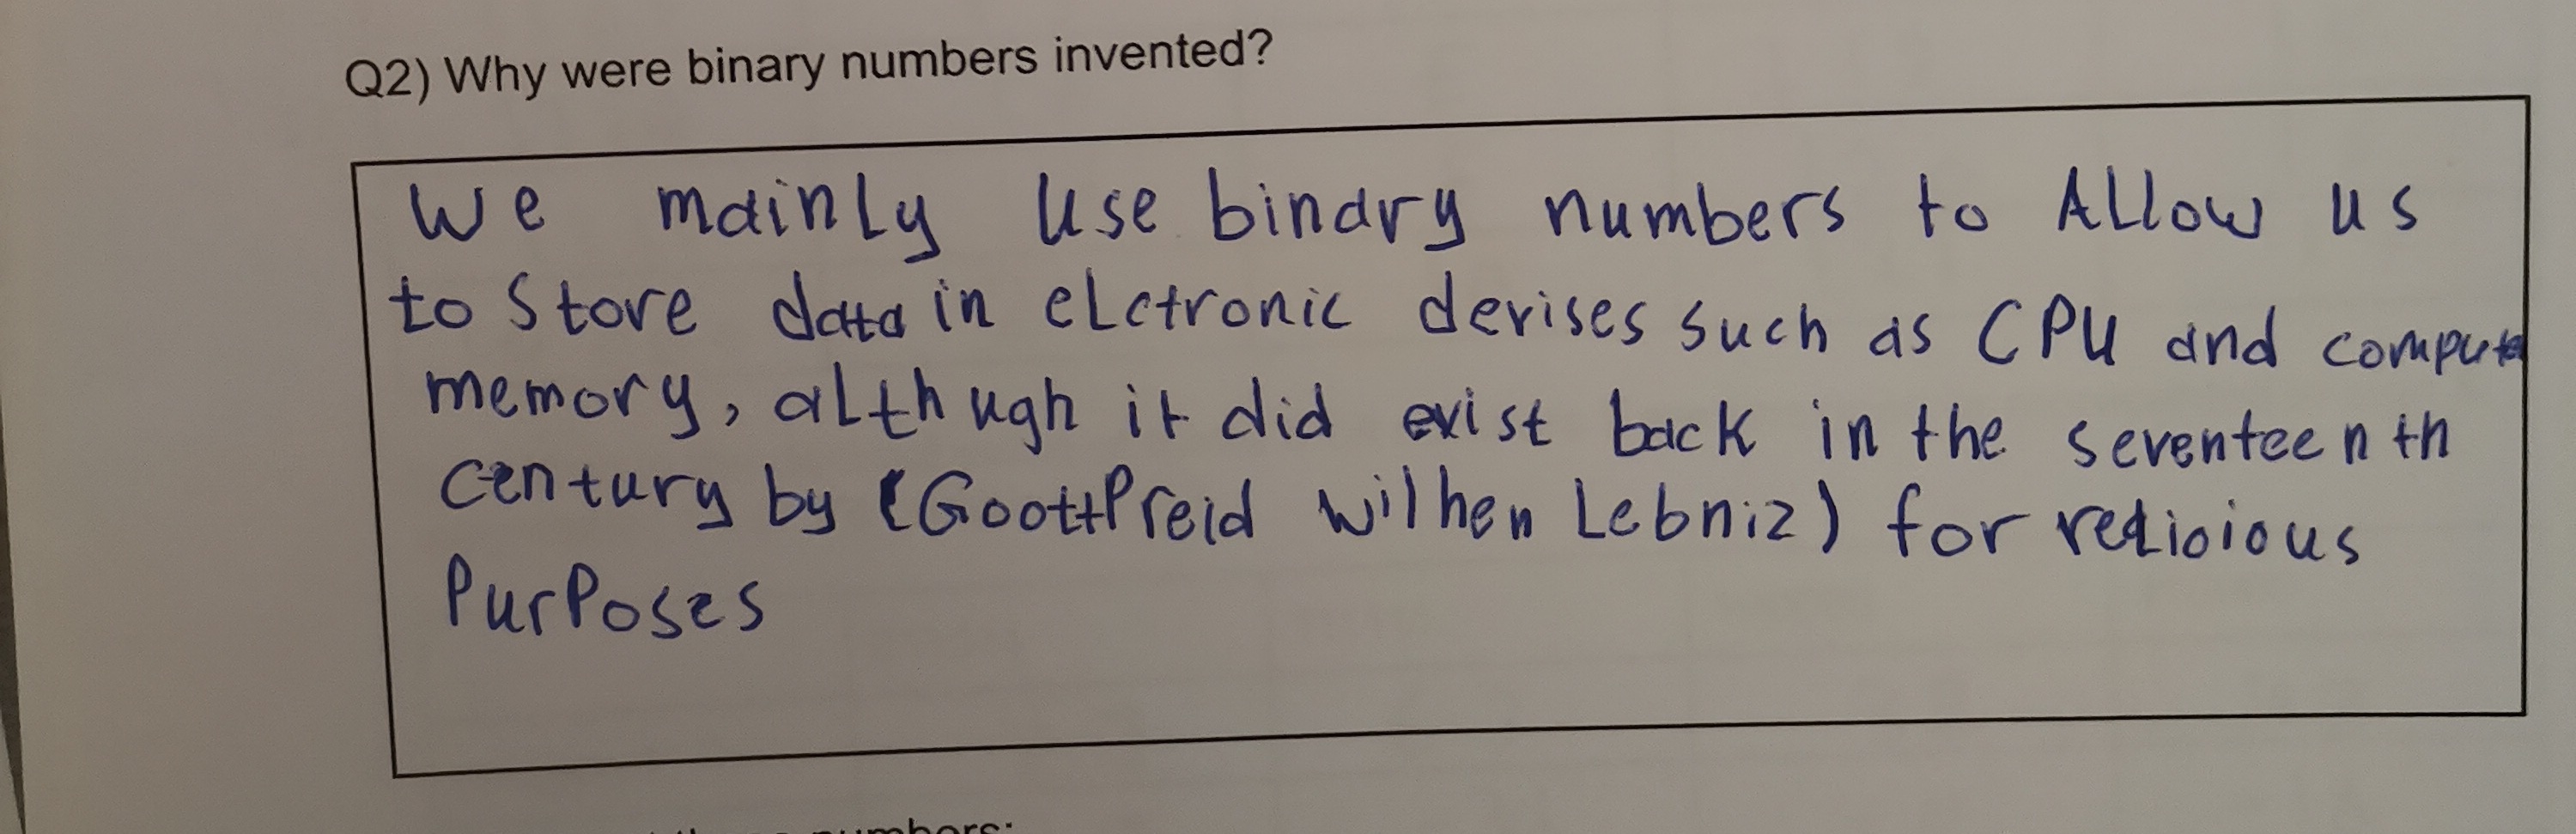 Q2) Why were binary numbers invented?
We mainly use binary numbers to Allow us
to store data in elctronic devises such as CPU and computer
memory, although it did exist back in the seventeenth
century by (GoottPreid wilhen Lebniz) for redioious
PurPoses
numbers: